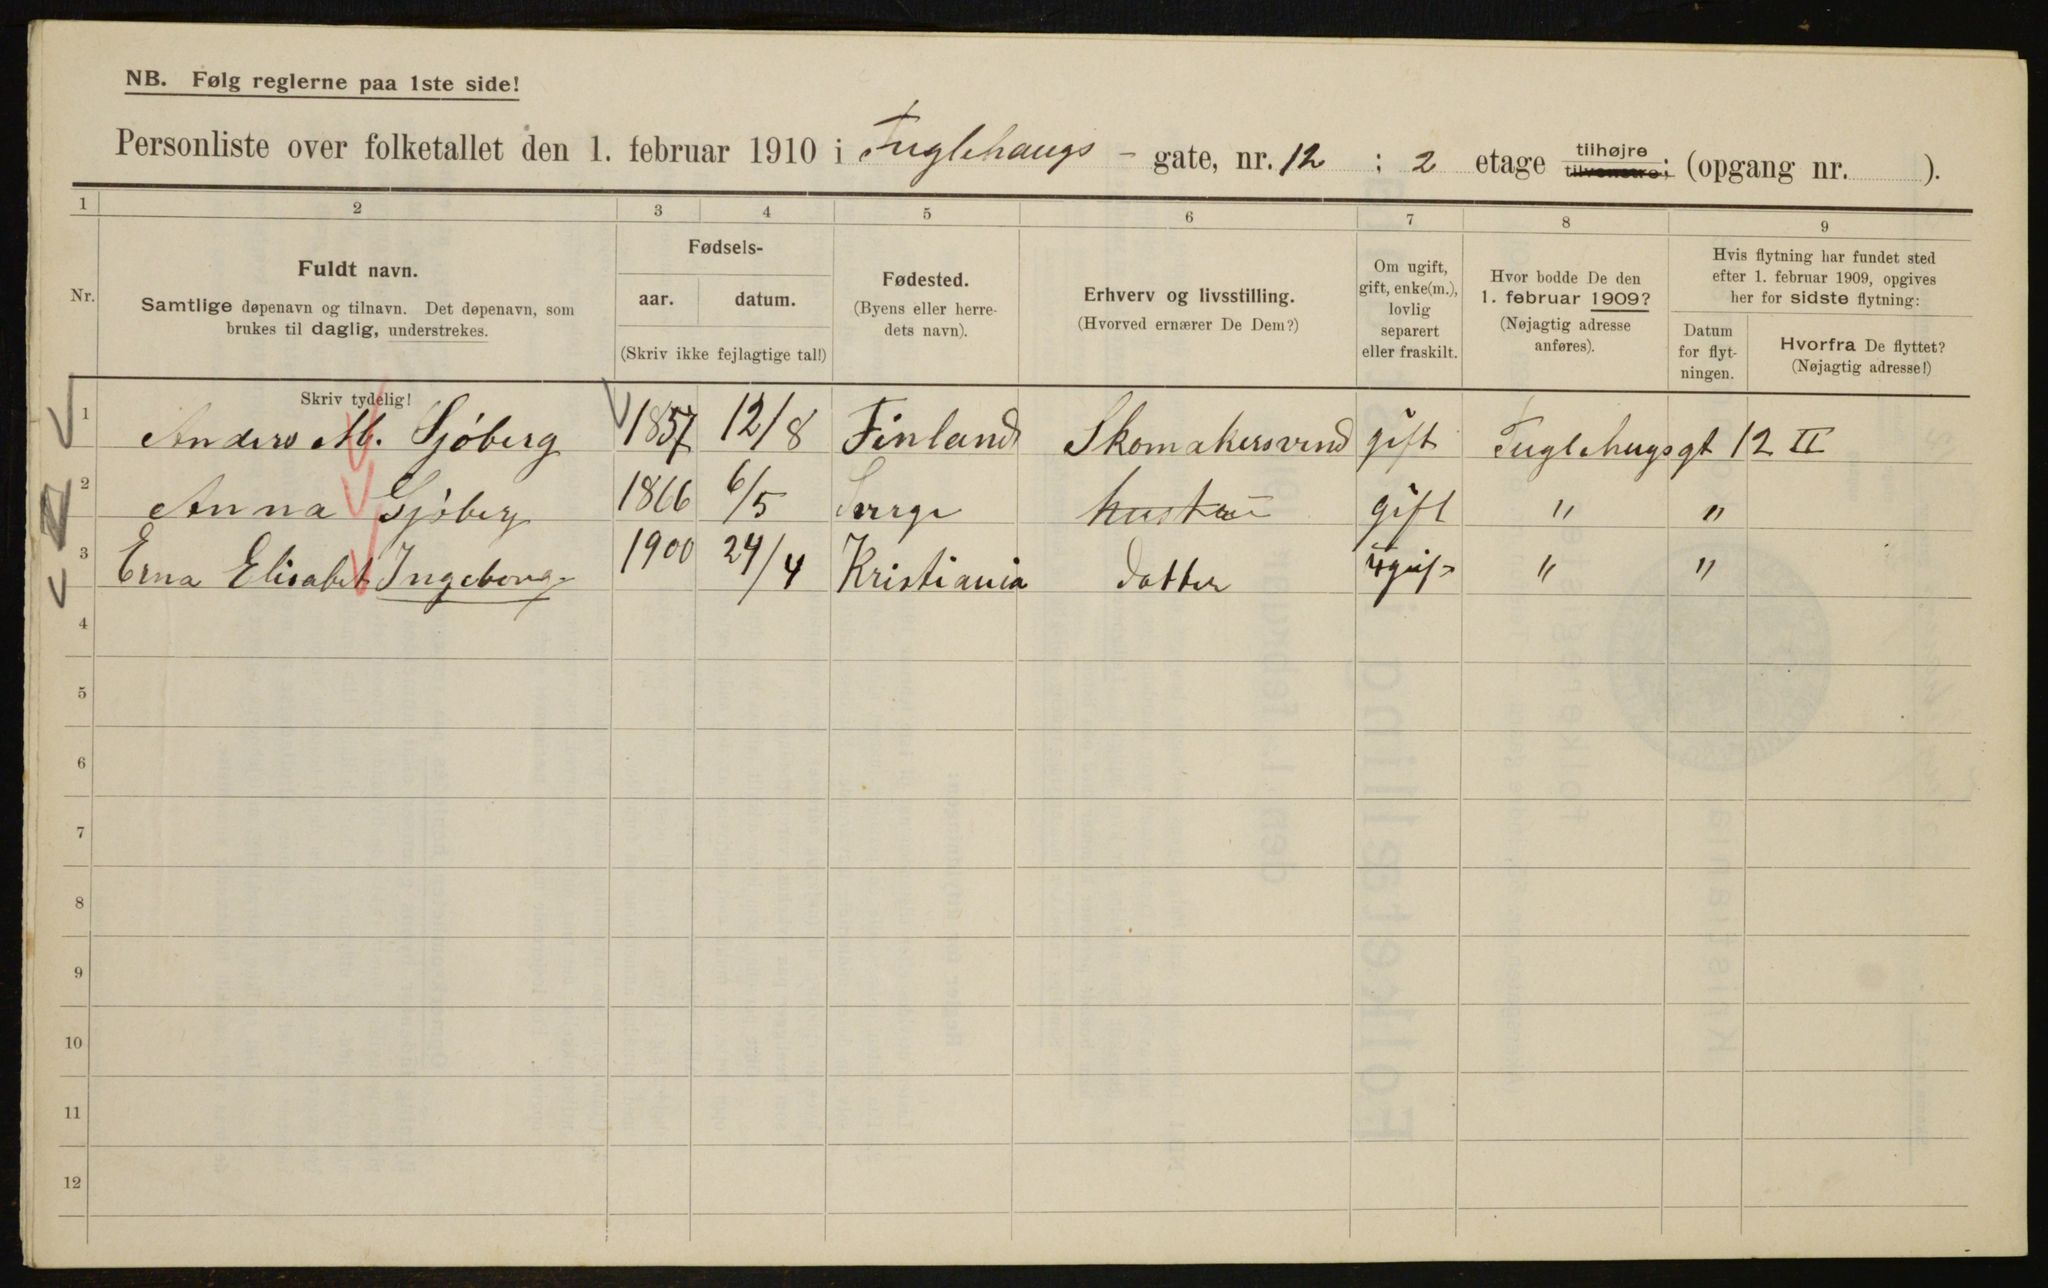 NB. Følg reglerne paa 1ste side!
Personliste over folketallet den 1. februar 1910 i Fuglehaugs - gate, nr. 12 ; 2 etage tilhøjre tilvenstre; (opgang nr. ).
1 2 3 4 5 6 7 8 9
Nr.
Fuldt navn.
Samtlige døpenavn og tilnavn. Det døpenavn, som
brukes til daglig, understrekes.
Fødsels-
aar. datum.
(Skriv ikke fejlagtige tal!)
Fødested.
(Byens eller herre-
dets navn).
Erhverv og livsstilling.
(Hvorved ernærer De Dem?)
Om ugift,
gift, enke(m.),
lovlig
separert
eller fraskilt.
Hvor bodde De den
1. februar 1909?
(Nøjagtig adresse
anføres).
Hvis flytning har fundet sted
efter 1. februar 1909, opgives
her for sidste flytning:
Datum
for flyt-
ningen.
Hvorfra De flyttet?
(Nøjagtig adresse!)
Skriv tydelig!
1 Anders M. Sjöberg 1857 12/8 Finland Skomakersvend gift Fuglehugsgt 12 II
2 Anna Sjöberg 1866 6/5 Sverge hustru gift " "
3 Erna Elisabet Ingeborg 1900 24/4 Kristiania datter ugift " "
4
5
6
7
8
9
10
11
12